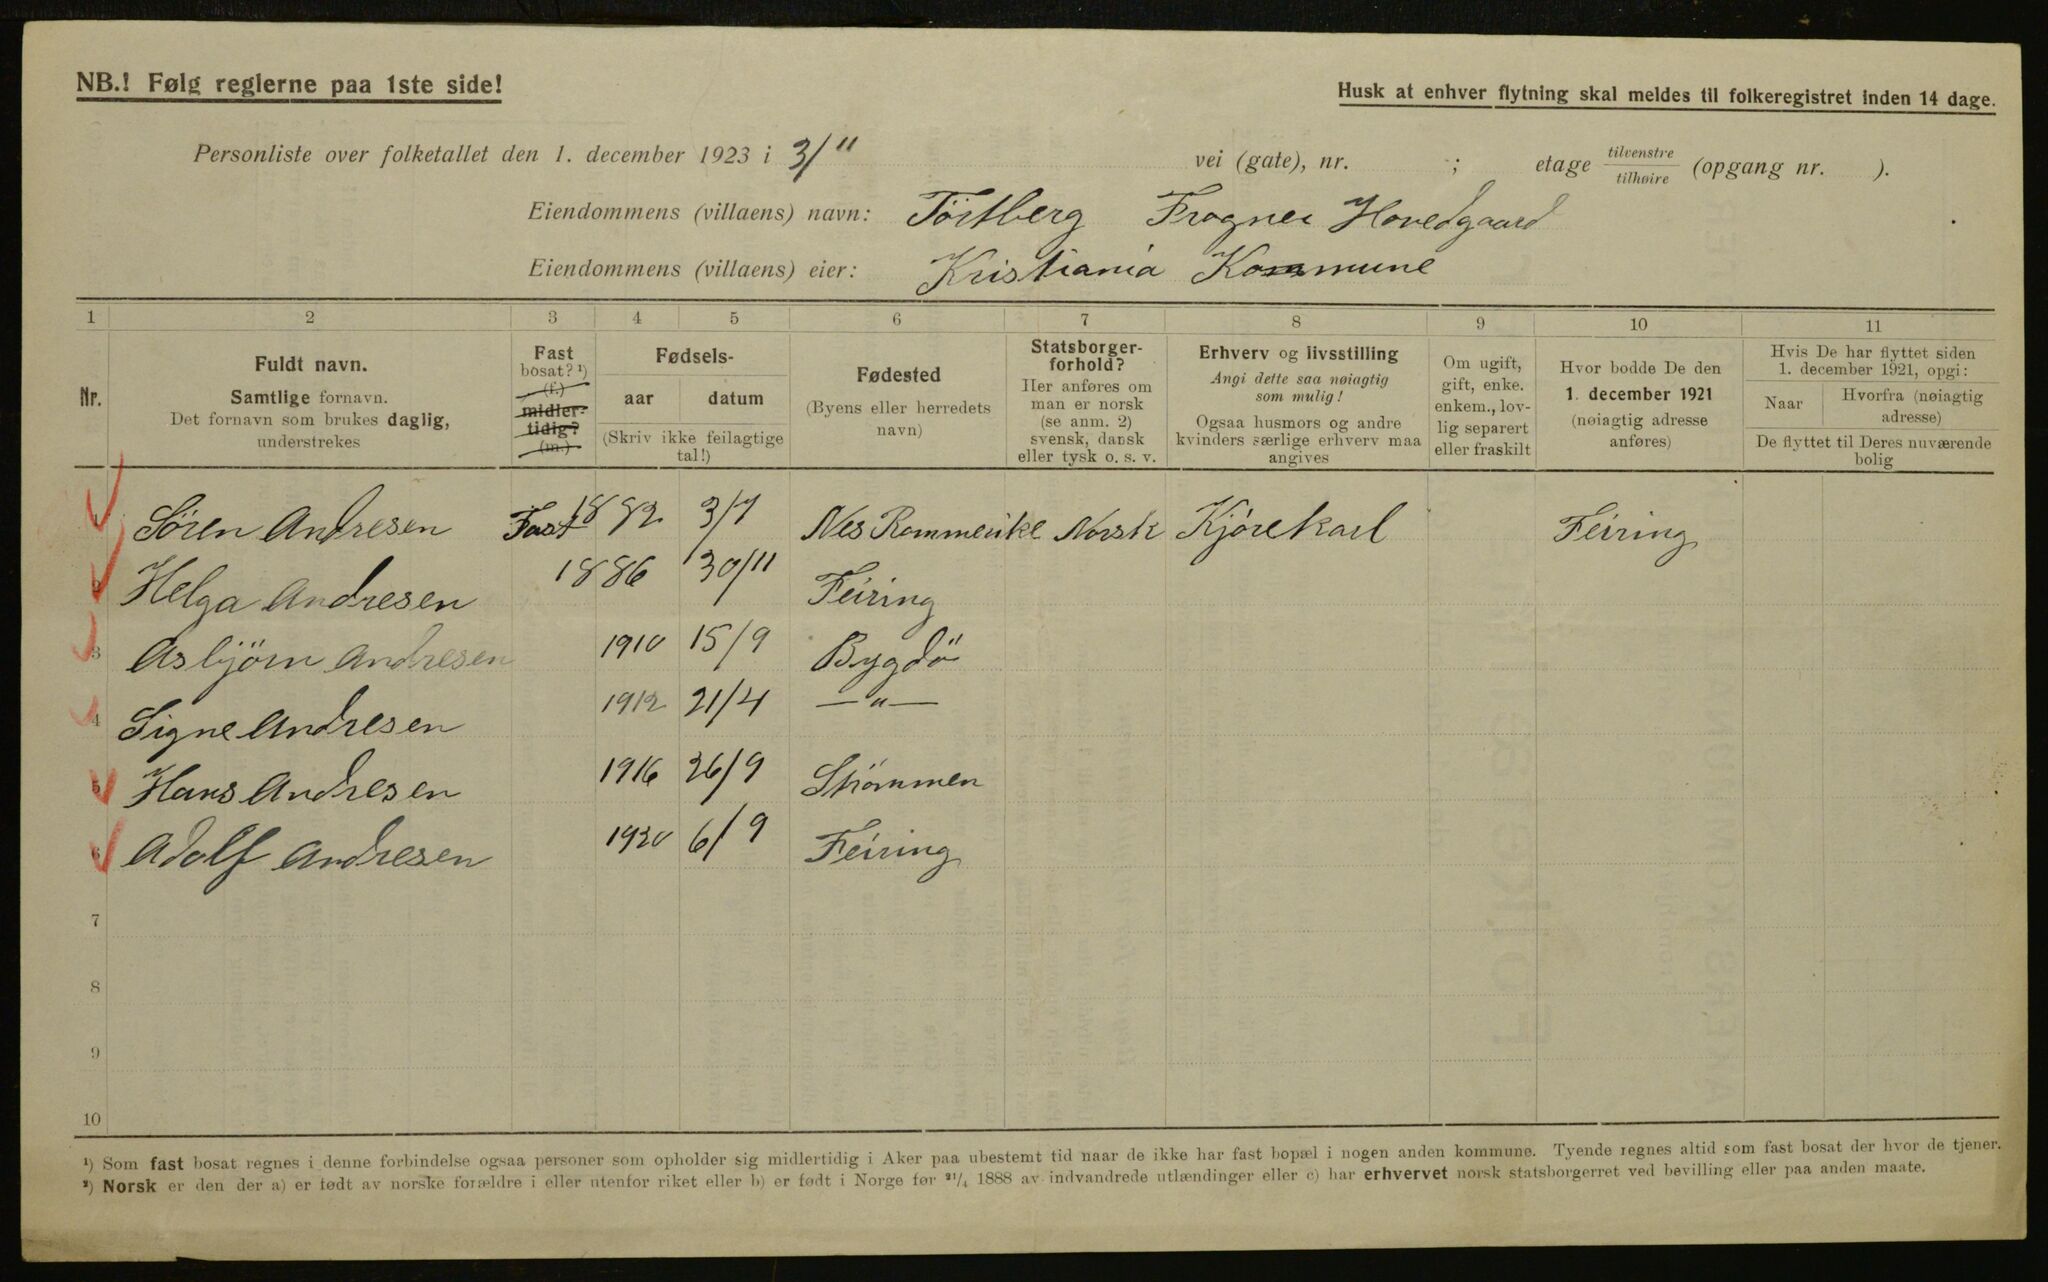 NB.! Følg reglerne paa 1ste side!
Husk at enhver flytning skal meldes til folkeregistret inden 14 dage.
Personliste over folketallet den 1. december 1923 i 3/" vei (gate), nr. ; etage tilvenstre/tilhøire (opgang nr. ).
Eiendommens (villaens) navn: Törtberg Frogner Hovedgaard
Eiendommens (villaens) eier: Kristiania Kommune
1 2 3 4 5 6 7 8 9 10 11
Nr.
Fuldt navn.
Samtlige fornavn.
Det fornavn som brukes daglig,
understrekes
Fast
bosat? ¹)
(f.)
midler-
tidig?
(m.)
Fødsels-
aar datum
(Skriv ikke feilagtige
tal!)
Fødested
(Byens eller herredets
navn)
Statsborger-
forhold?
Her anføres om
man er norsk
(se anm. 2)
svensk, dansk
eller tysk o. s. v.
Erhverv og livsstilling
Angi dette saa nøiagtig
som mulig!
Ogsaa husmors og andre
kvinders særlige erhverv maa
angives
Om ugift,
gift, enke.
enkem., lov-
lig separert
eller fraskilt
Hvor bodde De den
1. december 1921
(nøiagtig adresse
anføres)
Hvis De har flyttet siden
1. december 1921, opgi:
Naar
Hvorfra (nøiagtig
adresse)
De flyttet til Deres nuværende
bolig
1 Sören Andresen Fast 1882 3/7 Nes Rommerike Norsk Kjörekarl Feiring
2 Helga Andresen 1886 30/11 Feiring
3 Asbjörn Andresen 1910 15/9 Bygdö
4 Signe Andresen 1912 21/4 —"—
5 Hans Andresen 1916 26/9 Strömmen
6 Adolf Andresen 1920 6/9 Feiring
7
8
9
10
¹) Som fast bosat regnes i denne forbindelse ogsaa personer som opholder sig midlertidig i Aker paa ubestemt tid naar de ikke har fast bopæl i nogen anden kommune. Tyende regnes altid som fast bosat der hvor de tjener.
²) Norsk er den der a) er født av norske forældre i eller utenfor riket eller b) er født i Norge før ²¹/₄ 1888 av indvandrede utlændinger eller c) har erhvervet norsk statsborgerret ved bevilling eller paa anden maate.